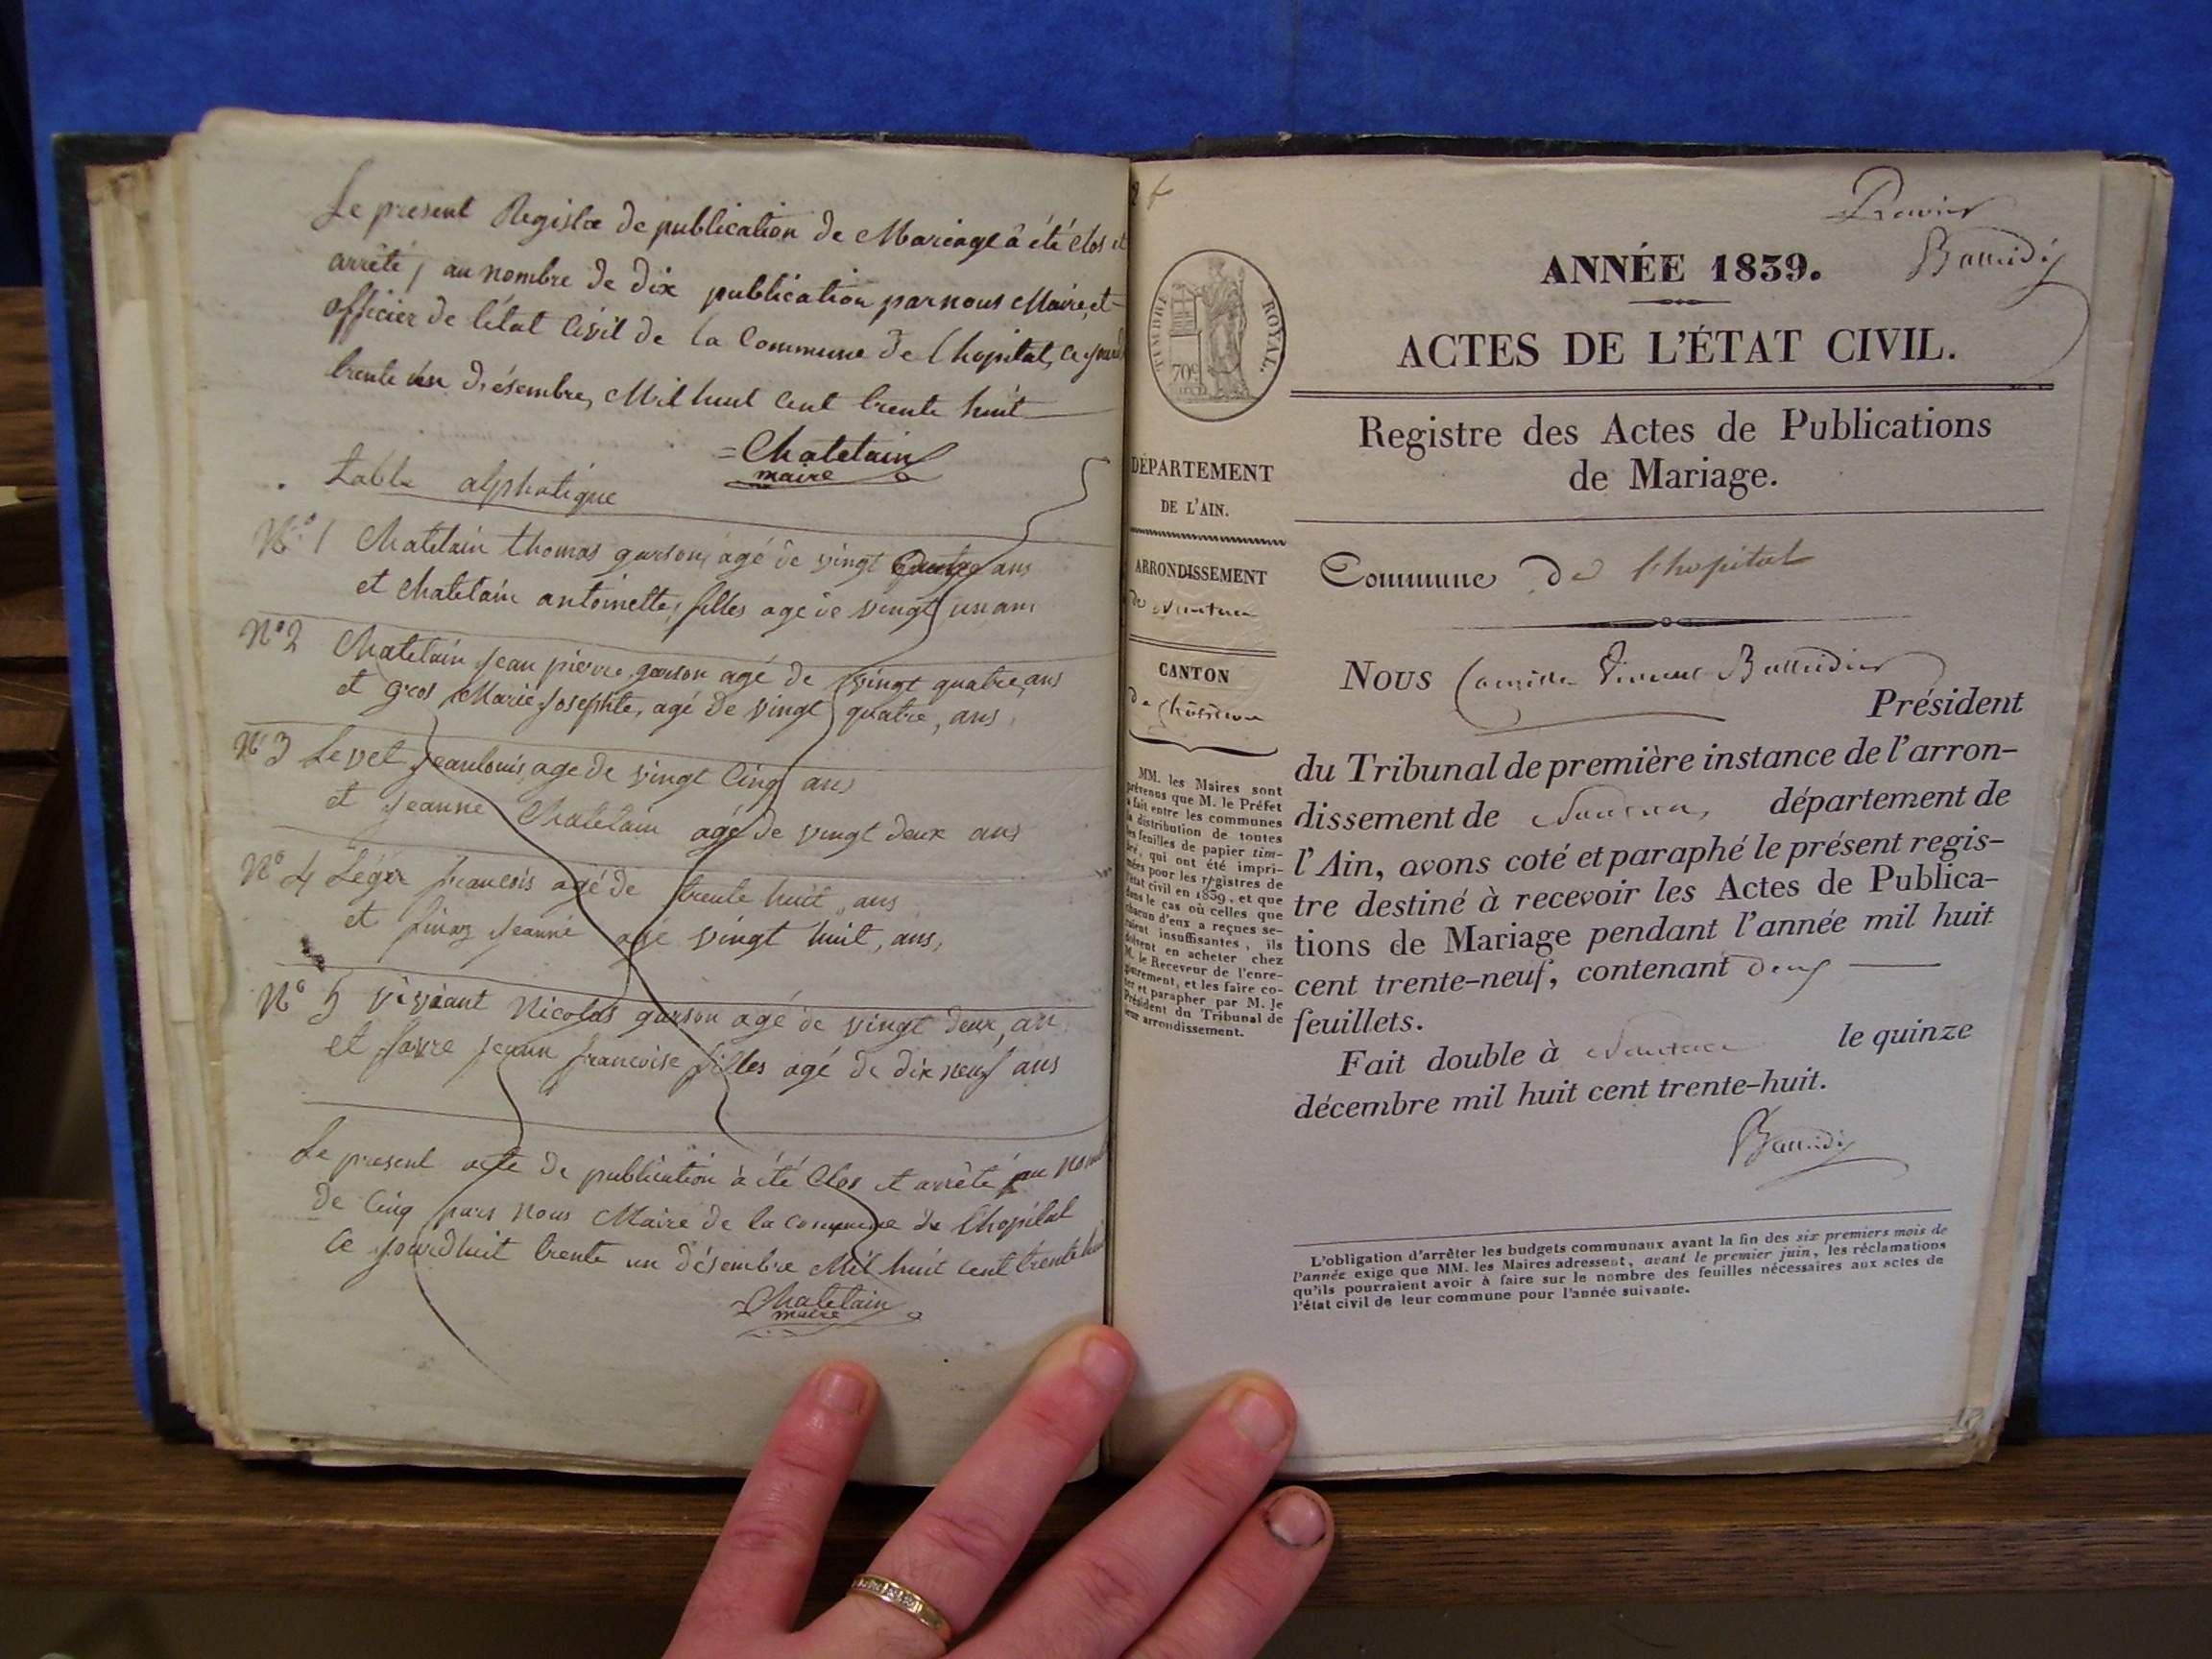 Le present Registre de publication de Mariage à été clos et
arrêté, au nombre de dix publication par nous Maire, et
officier de l'état Civil de la Commune de lhopital, ce jourd
trente un désembre, Mil huit Cent trente huit
Chatelain
maire
table alphatique
N° 1 Chatelain thomas garson, agé de vingt ans
et Chatelain antoinette, filles age de vingt un ans
N° 2 Chatelain Jean pierre garson agé de vingt quatre, ans
et gros Marie Josephte, agé de vingt quatre, ans,
N° 3 Levet Jeanlouis, age de vingt Cinq ans
et Jeanne Chatelain agé de vingt deux ans
N° 4 Léger francois agé de trente huit, ans
et finaz Jeanne agé vingt huit, ans,
N° 5 viviant Nicolas garson agé de vingt deux, an
et favre jeann francoise filles agé de dix neuf ans
Le present acte de publication à été Clos et arrêté au nom
de Cinq pars nous Maire de la commune de Lhopital
Ce jourdhuit trente un désembre Mil huit Cent trente hui
Chatelain
maire
ANNÉE 1839.
TIMBRE ROYAL.
70c
ACTES DE L'ÉTAT CIVIL.
Registre des Actes de Publications
de Mariage.
DÉPARTEMENT
DE L'AIN.
ARRONDISSEMENT
de Nantua
CANTON
de
MM. les Maires sont
prévenus que M. le Préfet
a fait entre les communes
la distribution de toutes
les feuilles de papier tim-
bré, qui ont été impri-
mées pour les registres de
l'état civil en 1839, et que
dans le cas où celles que
chacun d'eux a reçues se-
raient insuffisantes, ils
doivent en acheter chez
M. le Receveur de l'enre-
gistrement, et les faire co-
ter et parapher par M. le
Président du Tribunal de
leur arrondissement.
Commune de lhopital
Nous Camille Vincent Balleidier
Président
du Tribunal de première instance de l'arron-
dissement de Nantua, département de
l'Ain, avons coté et paraphé le présent regis-
tre destiné à recevoir les Actes de Publica-
tions de Mariage pendant l'année mil huit
cent trente-neuf, contenant deux
feuillets.
Fait double à Nantua le quinze
décembre mil huit cent trente-huit.
L'obligation d'arrêter les budgets communaux avant la fin des six premiers mois de
l'année exige que MM. les Maires adressent, avant le premier juin, les réclamations
qu'ils pourraient avoir à faire sur le nombre des feuilles nécessaires aux actes de
l'état civil de leur commune pour l'année suivante.